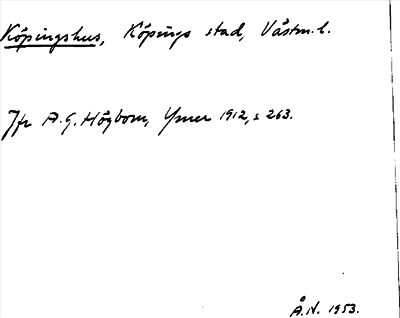 Köpingshus, Köpings stad, Västm. l.
Jfr A.G. Högbom, Ymer 1912, s 263.
Å.N. 1953.